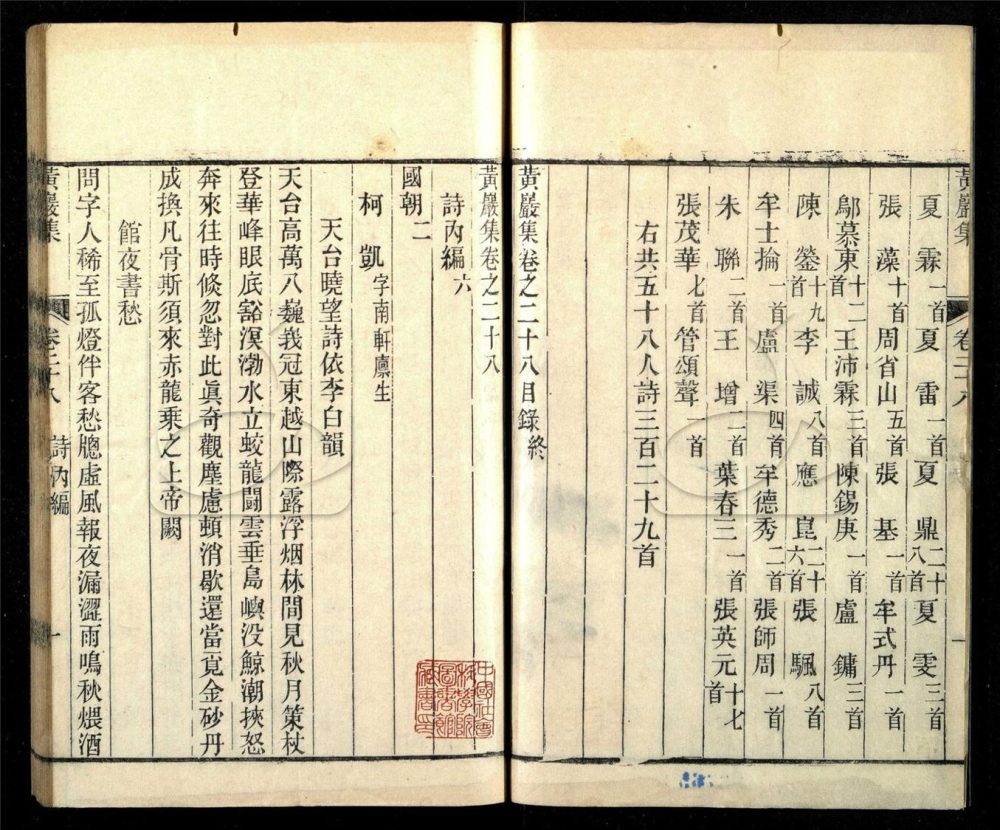 黃巖集 卷二十八 一
夏霖一首 夏雷一首 夏鼎二十八首 夏雯三首
張藻十首 周省山五首 張基一首 牟式丹一首
鄔慕東十二首 王沛霖三首 陳錫庚一首 盧鏞三首
陳鎣十九首 李誠八首 應崑二十六首 張颿八首
牟士掄一首 盧渠四首 牟德秀二首 張師周一首
朱聯二首 王增二首 葉春三一首 張英元十七首
張茂華七首 管頌聲一首
右共五十八人詩三百二十九首
黃巖集卷之二十八目錄終
黃巖集卷之二十八
詩內編六
國朝二
柯凱字南軒廩生
天台曉望詩依李白韻
天台高萬八巍峩冠東越山際露浮烟林間見秋月策杖
登華峰眼底豁溟渤水立蛟龍鬪雲垂島嶼没鯨潮挾怒
奔來往時倏忽對此眞奇觀塵慮頓消歇還當覓金砂丹
成換凡骨斯須來赤龍乘之上帝闕
館夜書愁
問字人稀至孤燈伴客愁牕虛風報夜漏澀雨鳴秋煨酒
黃巖集 卷二十八 詩內編 一
中國社會科學院圖書館藏書印